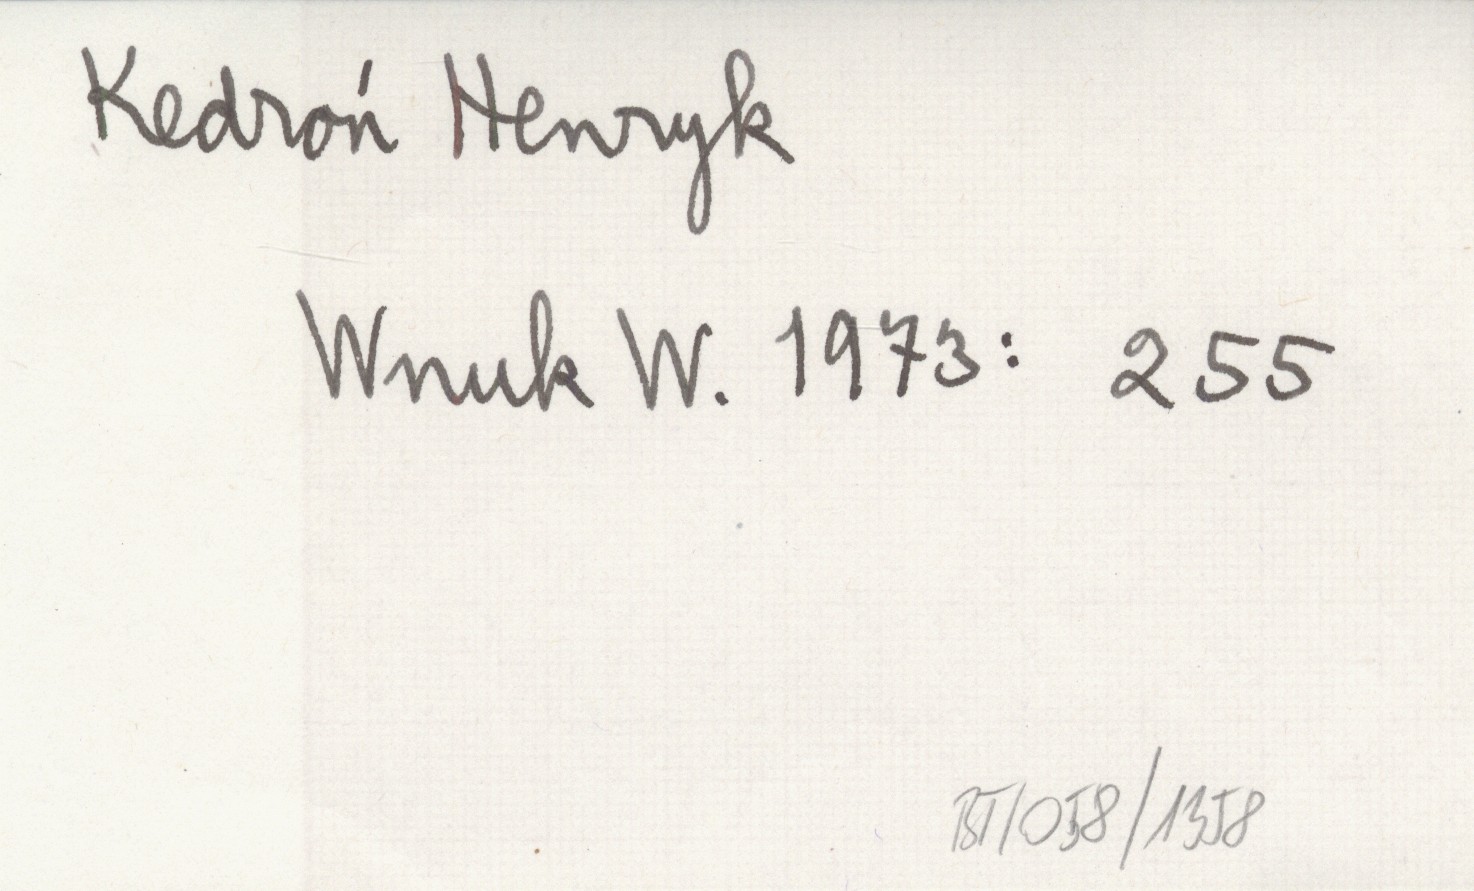 Kedroń Henryk
Wnuk W. 1973: 255
BT/058/1358